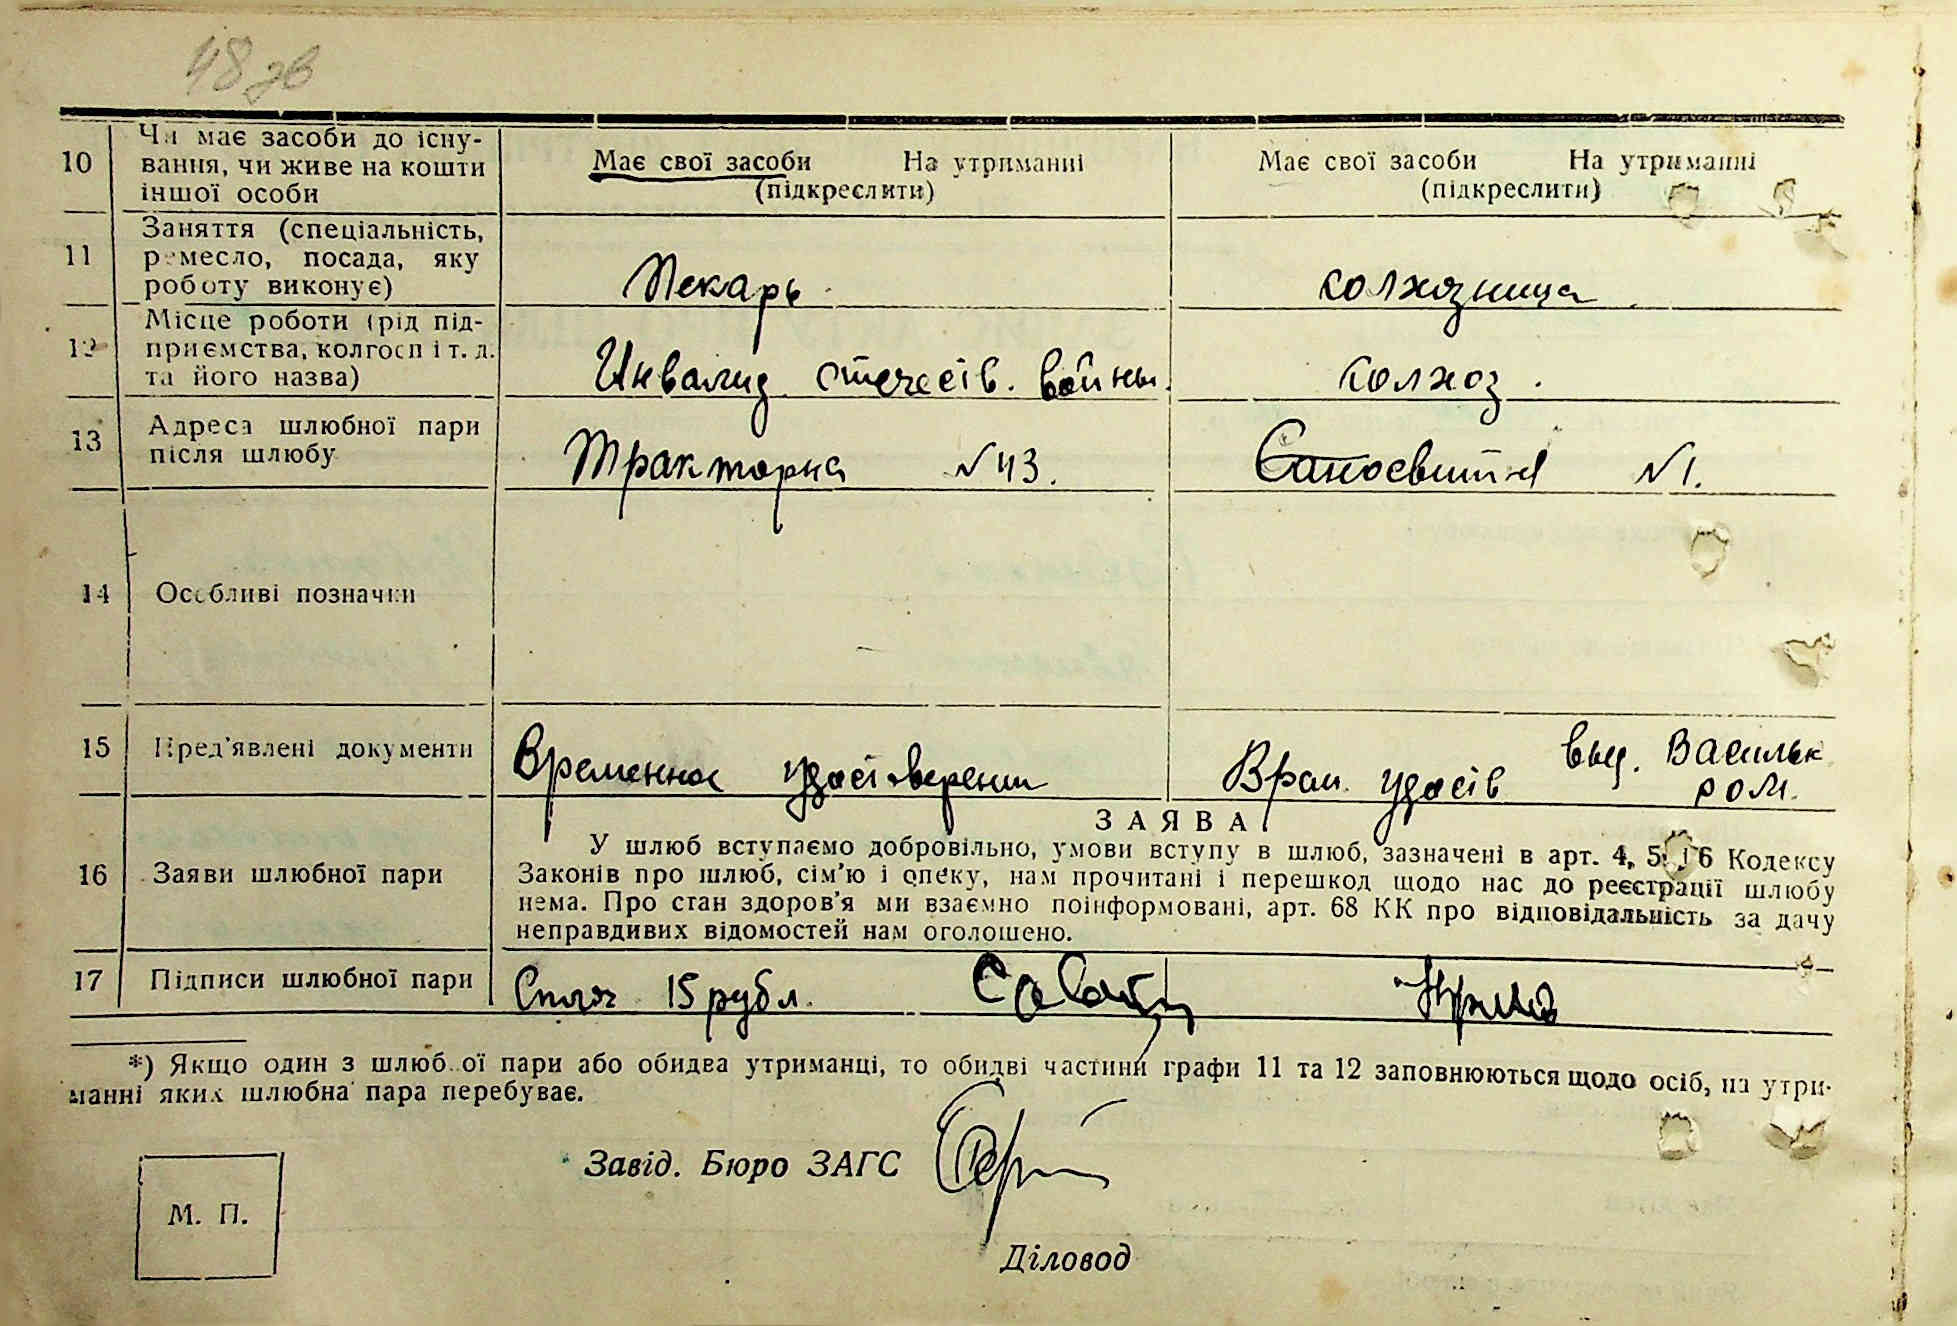 48 зв
10
Чи має засоби до існу-
вання, чи живе на кошти
іншої особи
Має свої засоби На утриманні
(підкреслити)
Має свої засоби На утриманні
(підкреслити)
11
Заняття (спеціальність,
ремесло, посада, яку
роботу виконує)
Пекарь
колхозница
12
Місце роботи (рід під-
приємства, колгосп і т. д.
та його назва)
Инвалид отечеств. войны.
колхоз.
13
Адреса шлюбної пари
після шлюбу
Тракторна №43.
№1.
14
Особливі позначки
15
Пред'явлені документи
Временное удостоверении
Врем. удоств выд. Васильк
ром.
16
Заяви шлюбної пари
ЗАЯВА
У шлюб вступаємо добровільно, умови вступу в шлюб, зазначені в арт. 4, 5 і 6 Кодексу
Законів про шлюб, сім'ю і опеку, нам прочитані і перешкод щодо нас до реєстрації шлюбу
нема. Про стан здоров'я ми взаємно поінформовані, арт. 68 КК про відповідальність за дачу
неправдивих відомостей нам оголошено.
17
Підписи шлюбної пари
15 рубл.
*) Якщо один з шлюбної пари або обидва утриманці, то обидві частини графи 11 та 12 заповнюються щодо осіб, на утри-
манні яких шлюбна пара перебуває.
Завід. Бюро ЗАГС
М. П.
Діловод